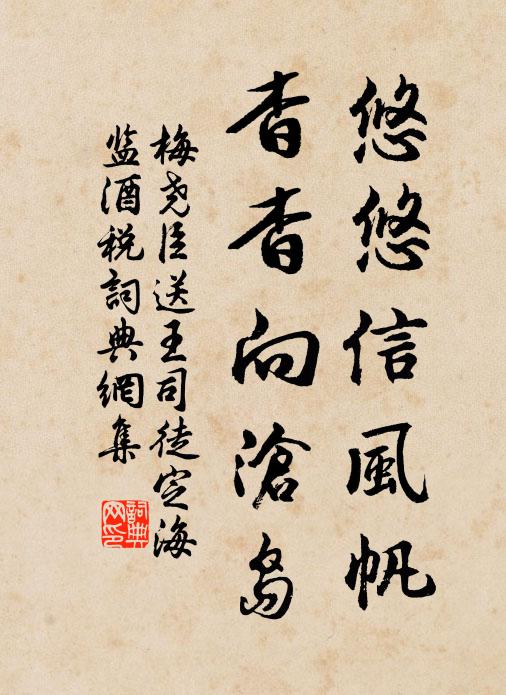 悠悠信風帆
杳杳向滄島
梅尧臣送王司徒定海
监酒税詞典網集
詞典网印